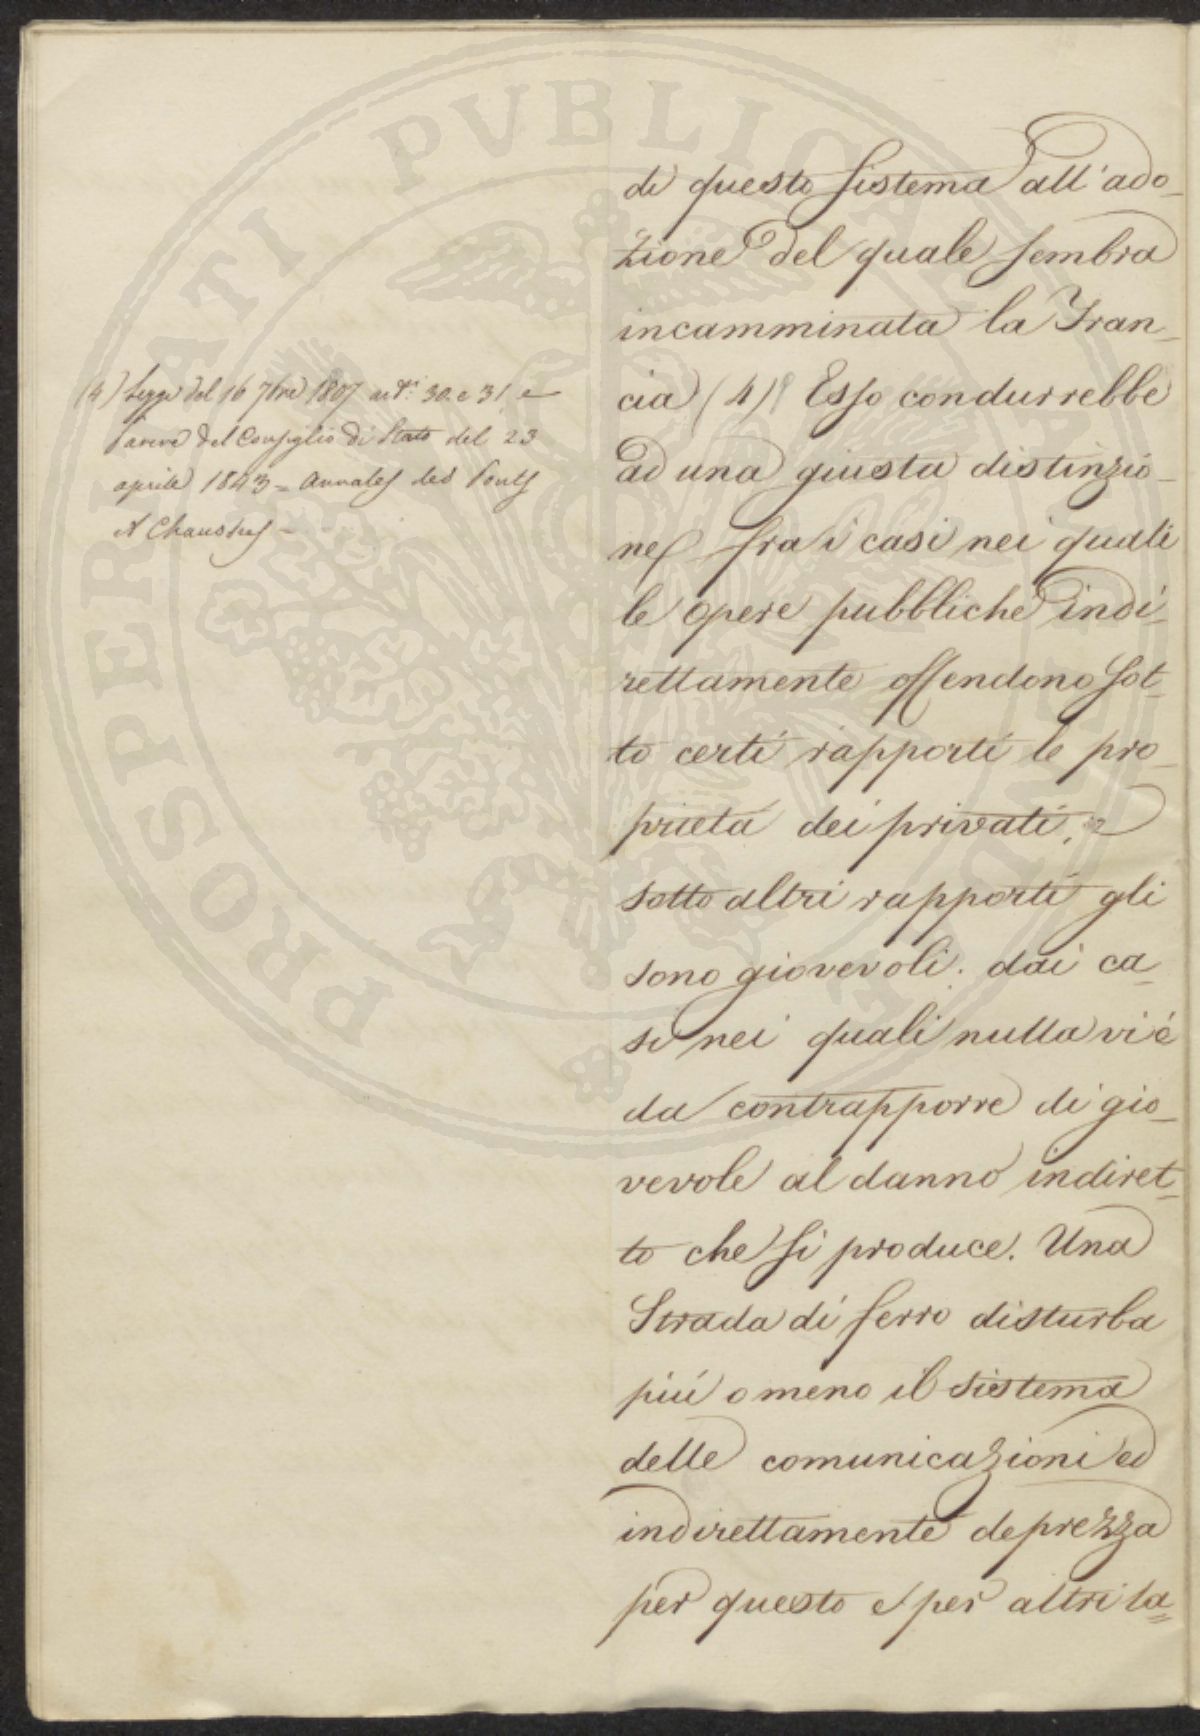 di questo sistema all'ado-
zione del quale sembra
incamminata la Fran-
cia (4) Esso condurrebbe
ad una giusta distinzio-
ne fra i casi nei quali
le opere pubbliche indi-
rettamente offendono sot-
to certi rapporti le pro-
prietá dei privati, e
sotto altri rapporti gli
sono giovevoli. dai ca-
si nei quali nulla vi é
da contrapporre di gio-
vevole al danno indiret-
to che si produce. Una
Strada di ferro disturba
piú o meno il sistema
delle comunicazioni ed
indirettamente deprezza
per questo e per altri la=
(4) Legge del 16 7bre 1807 arti. 30. e 31. e
Parere del Consiglio di Stato del 23
aprile 1843 = Annales des Ponts
et Chaussées =
PROSPERITATI PUBLICAE